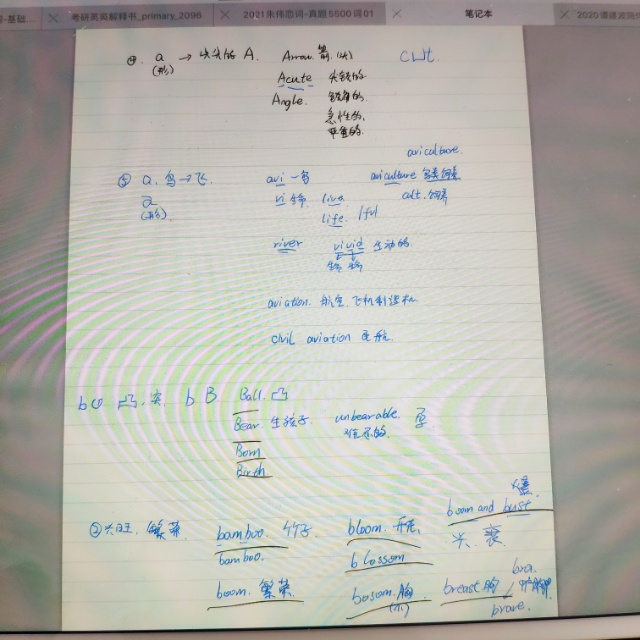 考研英英解释书_primary_2096
2021朱伟恋词-真题5500词01
笔记本
2020谭建波
④ a → 尖尖的 A. Arrow. 箭.(头) cut
(形) Acute 尖锐的
Angle. 锐角的
急性的,
严重的
aviculture.
⑤ a. 鸟→飞. avi 一鸟 aviculture 鸟类饲养
a vi 命 live cult. 饲养
(形) life. /ful
river vivid 生动的
aviation. 航空, 飞机制造业
civil aviation 民航.
b ① 凸. 突. b B Ball. 凸
Bear. 生孩子 unbearable. 孕
难忍的
Born
Birth
② 兴旺. 繁荣 bamboo. 竹子 bloom. 开花, boom and bust
bamboo. blossom 兴. 衰
boom. 繁荣. bosom. 胸 breast 胸 bra.
brave.